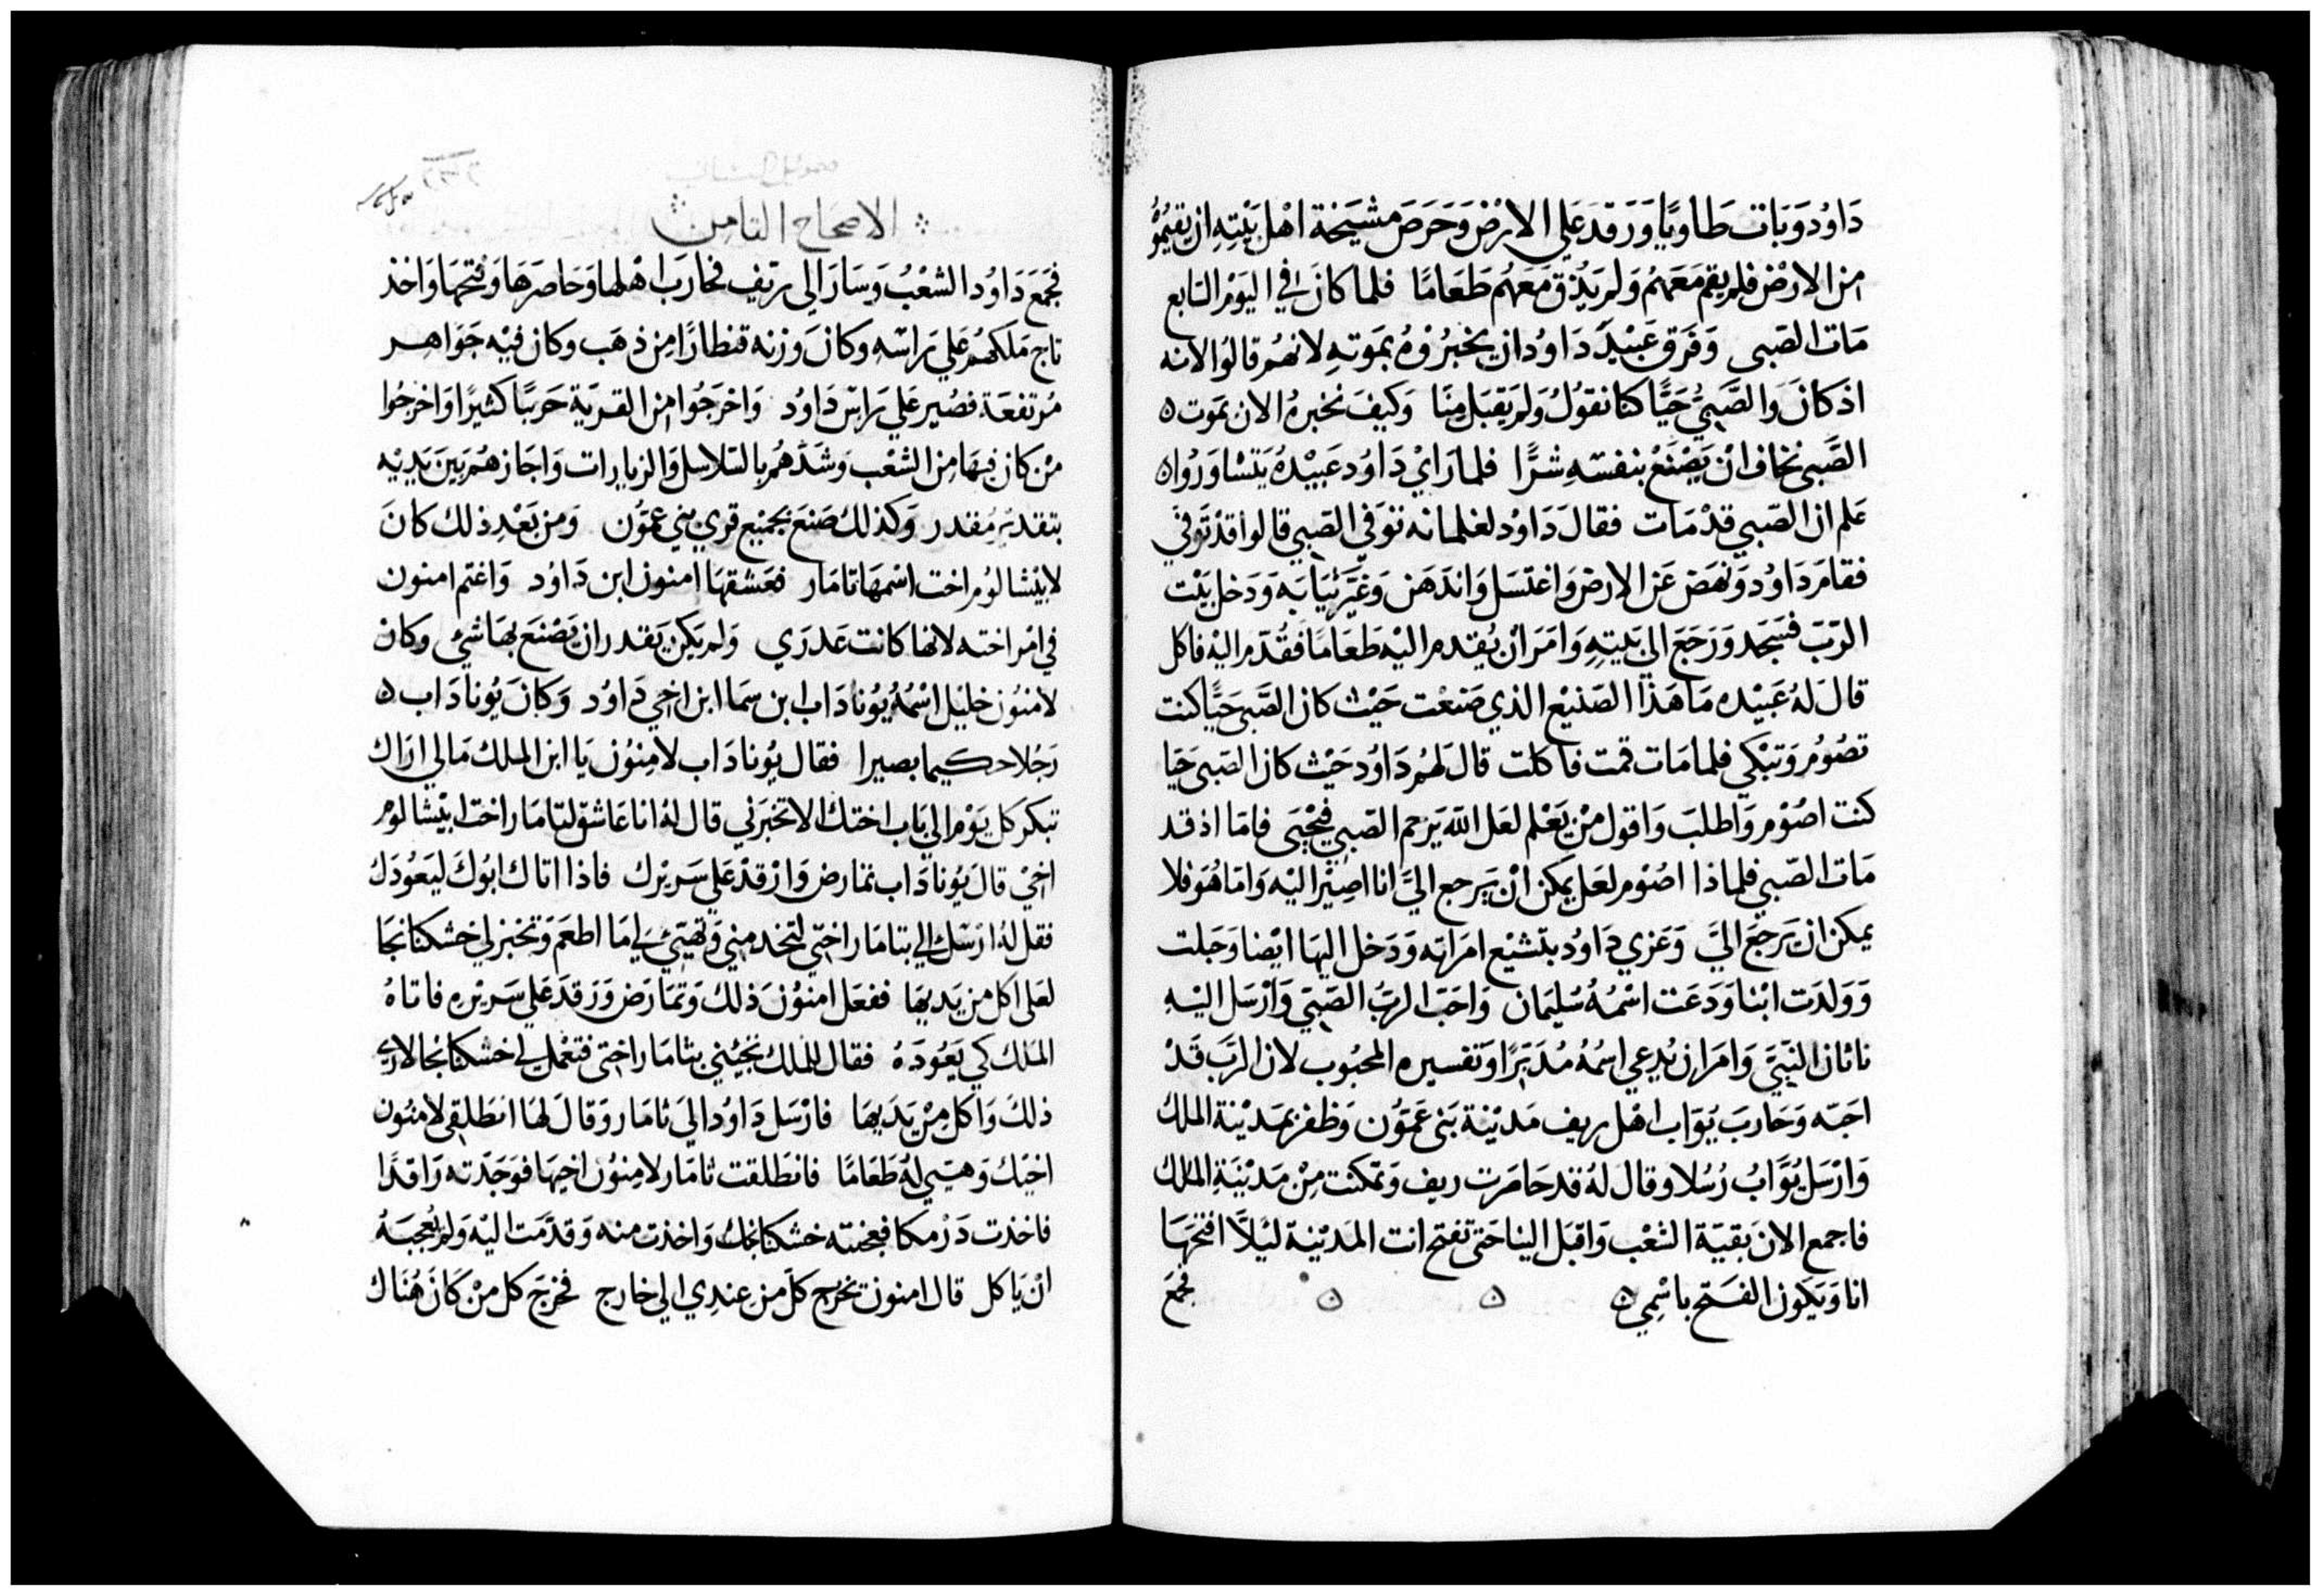 داود وبات طاويا ورقد على الارض وحرص مشيخة اهل بيته ان يقيموه
من الارض فلم يقم معهم ولم يذق معهم طعاما فلما كان في اليوم السابع
مات الصبى وفرق عبيد داود ان يخبروه بموته لانهم قالوا لانه
اذ كان والصبي حيا كنا نقول ولم يقبل منا وكيف نخبره الان بموت ه
الصبى نخاف ان يصنع بنفسه شرا فلما راي داود عبيده يتساوروا ه
علم ان الصبي قد مات فقال داود لغلمانه توفي الصبي قالوا قد توفي
فقام داود ونهض عن الارض واغتسل واندهن وغير ثيابه ودخل بيت
الرب فسجد ورجع الى بيته وامر ان يقدم اليه طعاما فقدم اليه فاكل
قال له عبيده ما هذا الصنيع الذي صنعت حيث كان الصبى حيا كنت
تصوم وتبكي فلما مات قمت فاكلت قال لهم داود حيث كان الصبى حيا
كنت اصوم واطلب واقول من يعلم لعل الله يرحم الصبي فيحيى فاما اذ قد
مات الصبي فلماذا اصوم لعل يمكن ان يرجع الي انا اصير اليه واما هو فلا
يمكن ان يرجع الي وعزي داود بتشيع امراته ودخل اليها ايضا وحبلت
وولدت ابنا ودعت اسمه سليمان واحب الرب الصبي وارسل اليه
ناثان النبي وامر ان يدعي اسمه مدبرا وتفسيره المحبوب لان الرب قد
احبه وحارب يواب اهل ريف مدينة بنى عمون وظفر بمدينة الملك
وارسل يواب رسلا وقال له قد حاصرت ريف وتمكنت من مدينة الملك
فاجمع الان بقية الشعب واقبل الينا حتى تفتح انت المدينة ليلا افتحها
انا ويكون الفتح باسمي ه ه ه
فجمع
صموئيل الثاني
الاصحاح الثامن
فجمع داود الشعب وسار الى ريف فحارب اهلها وحاصرها وفتحها واخذ
تاج ملكهم على راسه وكان وزنه قنطارا من ذهب وكان فيه جواهر
مرتفعة فصير على راس داود واخرجوا من القرية حربيا كثيرا واخرجوا
من كان فيها من الشعب وشدهم بالسلاسل والزيارات واجازهم بين يديه
بتقدير مقدر وكذلك صنع بجميع قري بني عمون ومن بعد ذلك كان
لابيشالوم اخت اسمها تامار فعشقها امنون ابن داود واغتم امنون
في امر اخته لانها كانت عدري ولم يكن يقدر ان يصنع بها شي وكان
لامنون خليل اسمه يوناداب ابن سما ابن اخي داود وكان يوناداب ه
رجلا حكيما بصيرا فقال يوناداب لامنون يا ابن الملك مالي اراك
تبكر كل يوم الى باب اختك الا تخبرني قال له انا عاشق لتامار اخت ابيشالوم
اخي قال يوناداب تمارض وارقد على سريرك فاذا اتاك ابوك ليعودك
فقل له ارسل الي بتامار اختي لتخدمني وتهيي لي اما اطعم وتخبز لي خشكنانجا
لعلى اكل من يديها ففعل امنون ذلك وتمارض ورقد على سريره فاتاه
الملك كي يعوده فقال للملك تجيني بتامار اختي فتعمل لي خشكنانجا لاري
ذلك واكل من يديها فارسل داود الى تامار وقال لها انطلقي لامنون
اخيك وهيي له طعاما فانطلقت تامار لامنون اخيها فوجدته راقدا
فاخذت درمكا فعجنته خشكنانجا واخذت منه وقدمت اليه ولم يعجبه
ان ياكل قال امنون تخرج كل من عندي الى خارج فخرج كل من كان هناك